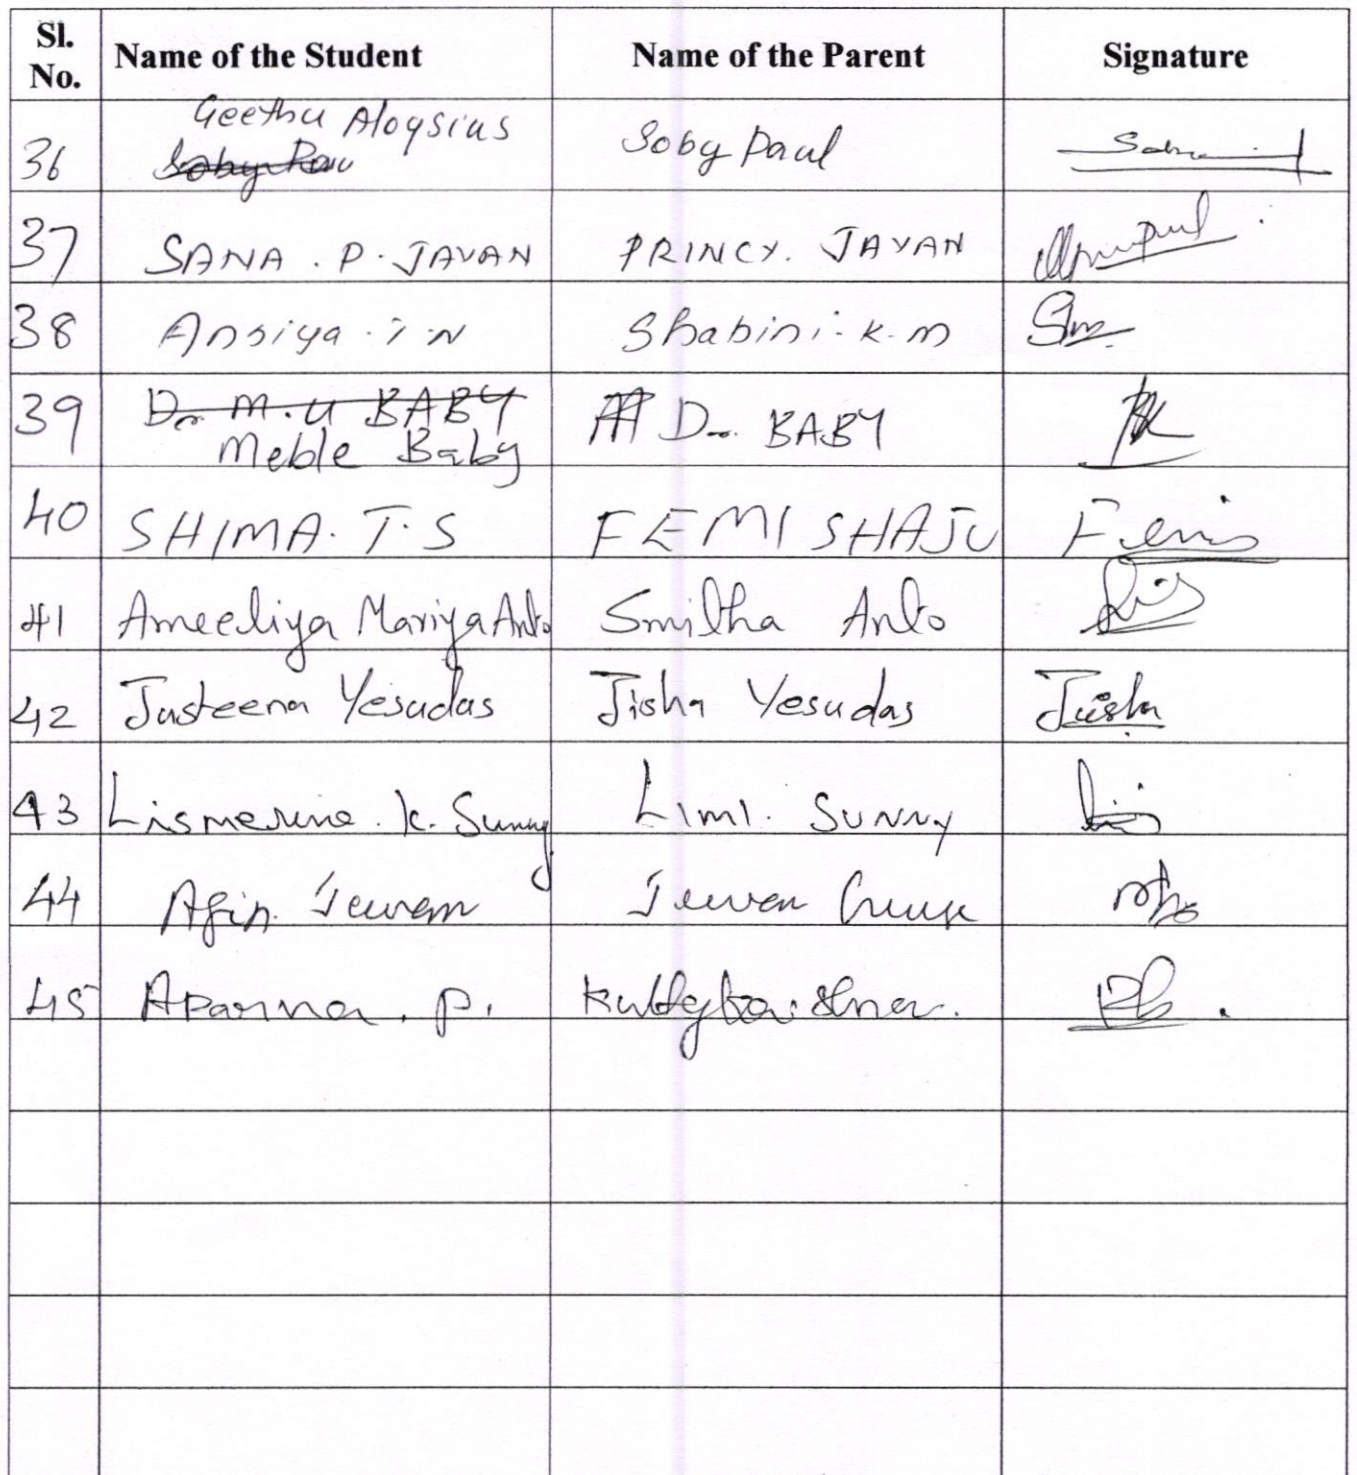 Sl. No. Name of the Student Name of the Parent Signature
Geethu Aloysius
36 Soby Paul
37 SANA . P . JAYAN PRINCY. JAYAN
38 Ansiya . i . N Shabini . K . m
39 Dr. M. U BABY Dr. BABY
Meble Baby
40 SHIMA. T. S FEMI SHAJU Femi
41 Ameeliya Mariya Anto Smitha Anto
42 Justeena Yesudas Jisha Yesudas Jisha
43 Lismerine . K. Sunny Limi. Sunny
44 Afin
45 Aparna . P. Kuttykrishnan.